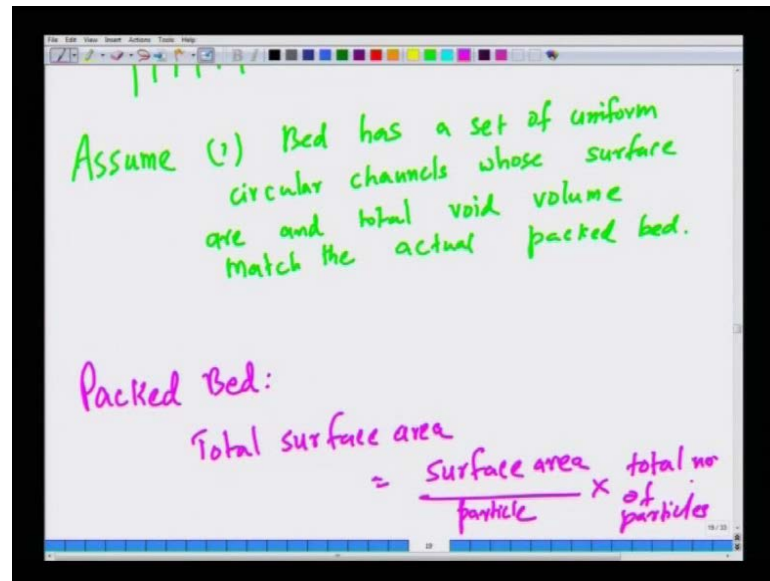 File Edit View Insert Actions Tools Help
Assume (1) Bed has a set of uniform
circular channels whose surface
are and total void volume
match the actual packed bed.
Packed Bed:
Total surface area
= surface area / particle × total no of particles